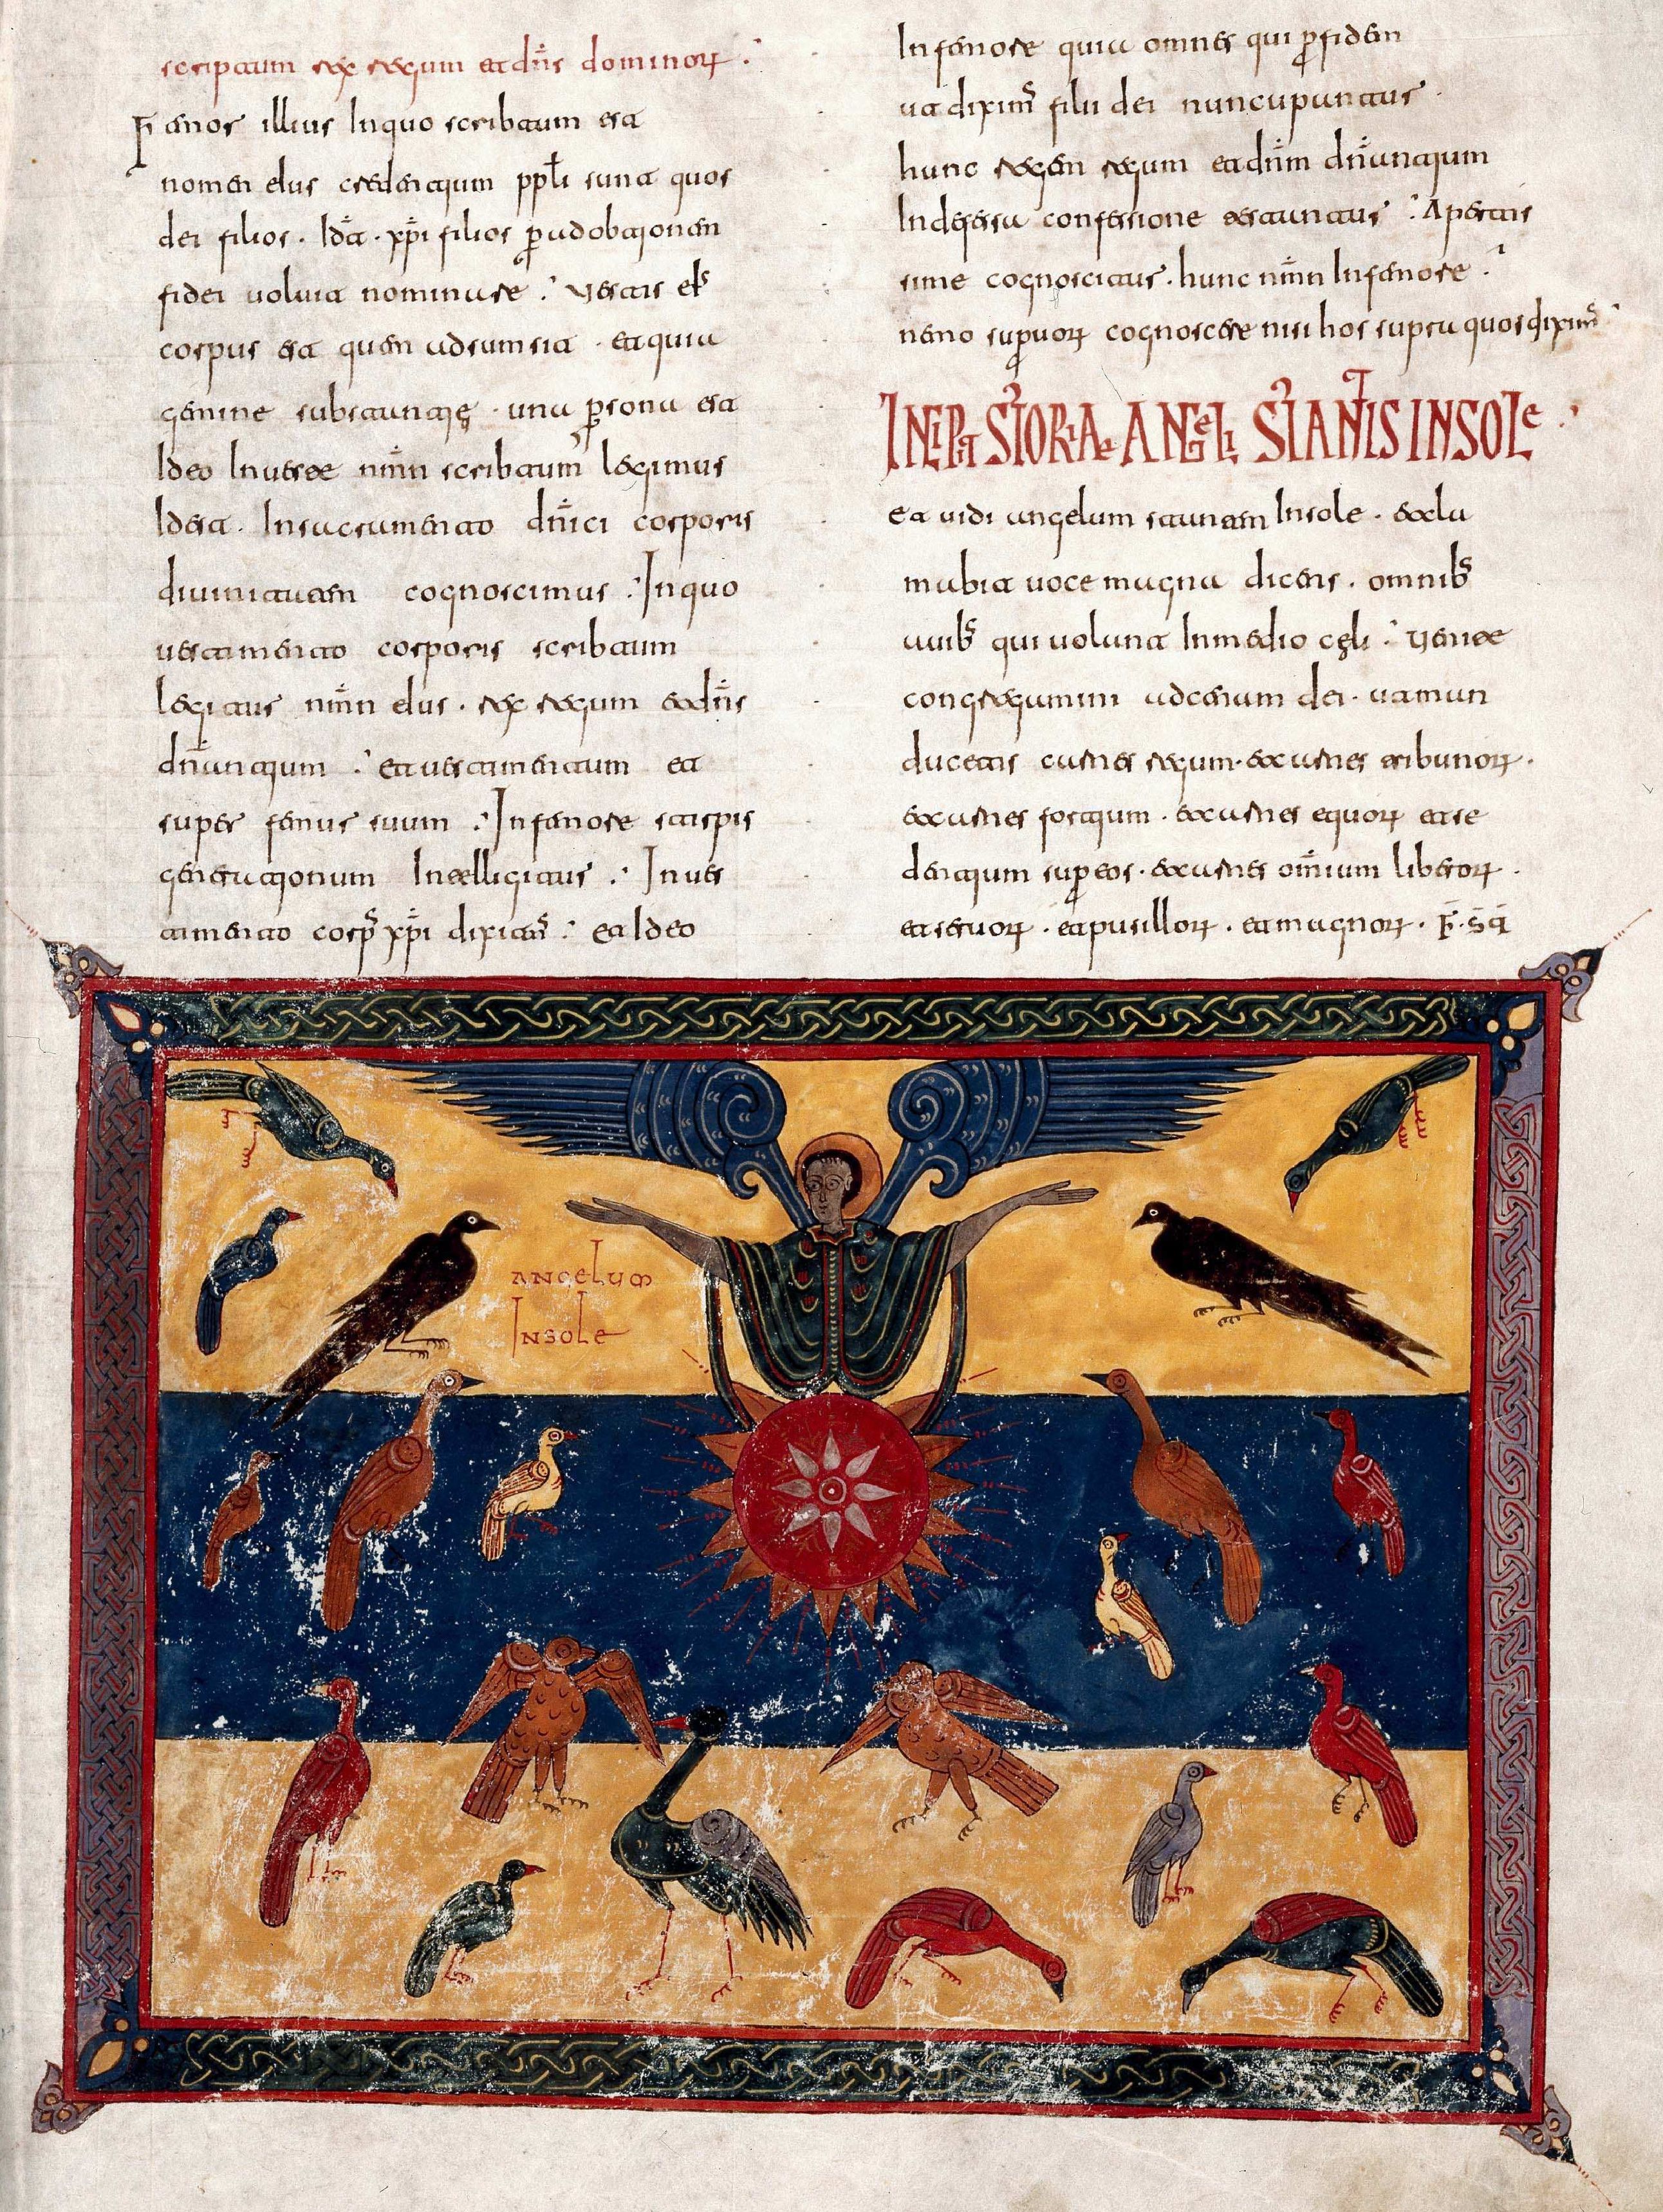 scriptum rex regum et dn̄s dominorꝝ.
Femor illius Inquo scribtum est
nomen eius credentium ppłi sunt quos
dei filios. Id ē. xp̄i filios ꝑ adobtionem
fidei voluit nominare : Vestis eiꝰ
corpus est quem adsumsit . et quia
gemine substantię . una ꝑsona est
Ideo Inutroe nm̄n scribtum legimus
Idest. Insacramento dn̄ici corporis
diuinitatem cognoscimus : Inquo
uestimento corporis scribtum
legitur nm̄n eius . rex regum et dn̄s
dn̄antium : et uestimentum et
super femur suum : Infemore stirpis
generationum Intelligitur : Inues
timento corpꝰ xp̄i : et Ideo
Infemore quia omnes qui ꝑ fidem
ut diximꝰ filii dei nuncupantur .
hunc regem regum et dn̄m dn̄antium
Indefessa confessione testantur : Apertis
sime cognoscitur . hunc nm̄n Infemore :
nemo cognoscere nisi hos supra quos diximꝰ
INCIPIT STORIAe ANGELI STANTIS INSOLE
et vidi angelum stantem Insole . et cla
mabit voce magna dicens . omnibꝰ
auibꝰ qui volant Inmedio cęli : Venite
congregamini ad cenam dei . ut man
ducetis carnes regum . et carnes tribunorꝝ .
et carnes fortium . et carnes equorꝝ et se
dentium suꝑ eos . et carnes om̄ium liberorꝝ .
et seruorꝝ . et pusillorꝝ . et magnorꝝ .
ANGELUM
INSOLE